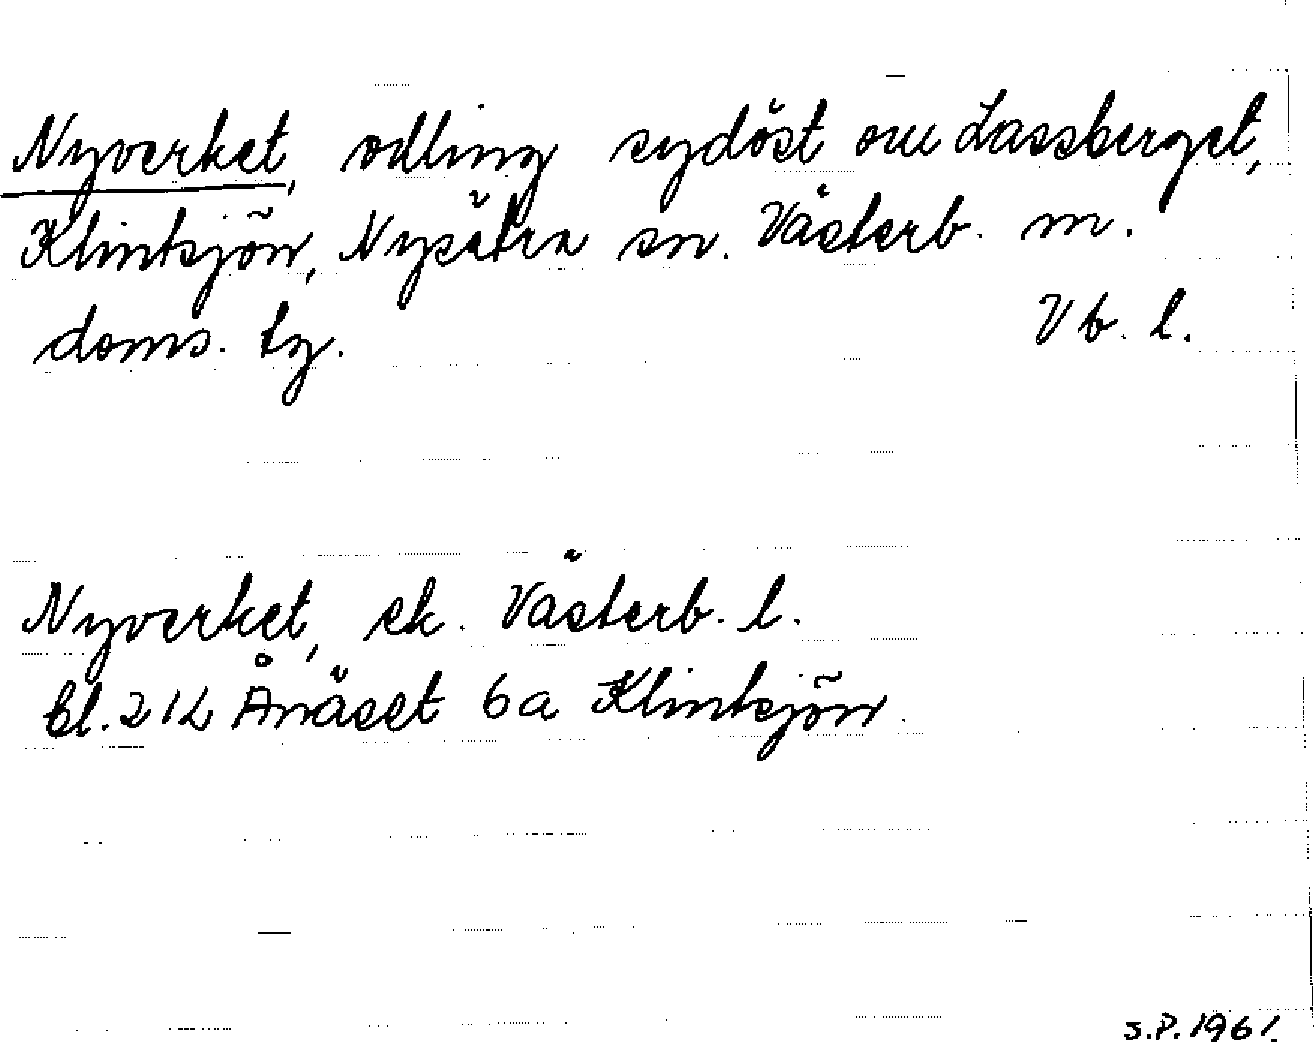 Nyverket, odling sydöst om Lassberget,
Klintsjön, Nysätra sn. Västerb. m.
doms. tg. Vb. l.
Nyverket, ek. Västerb. l.
bl. 21L Ånäset 6a Klintsjön.
S.P. 1961.